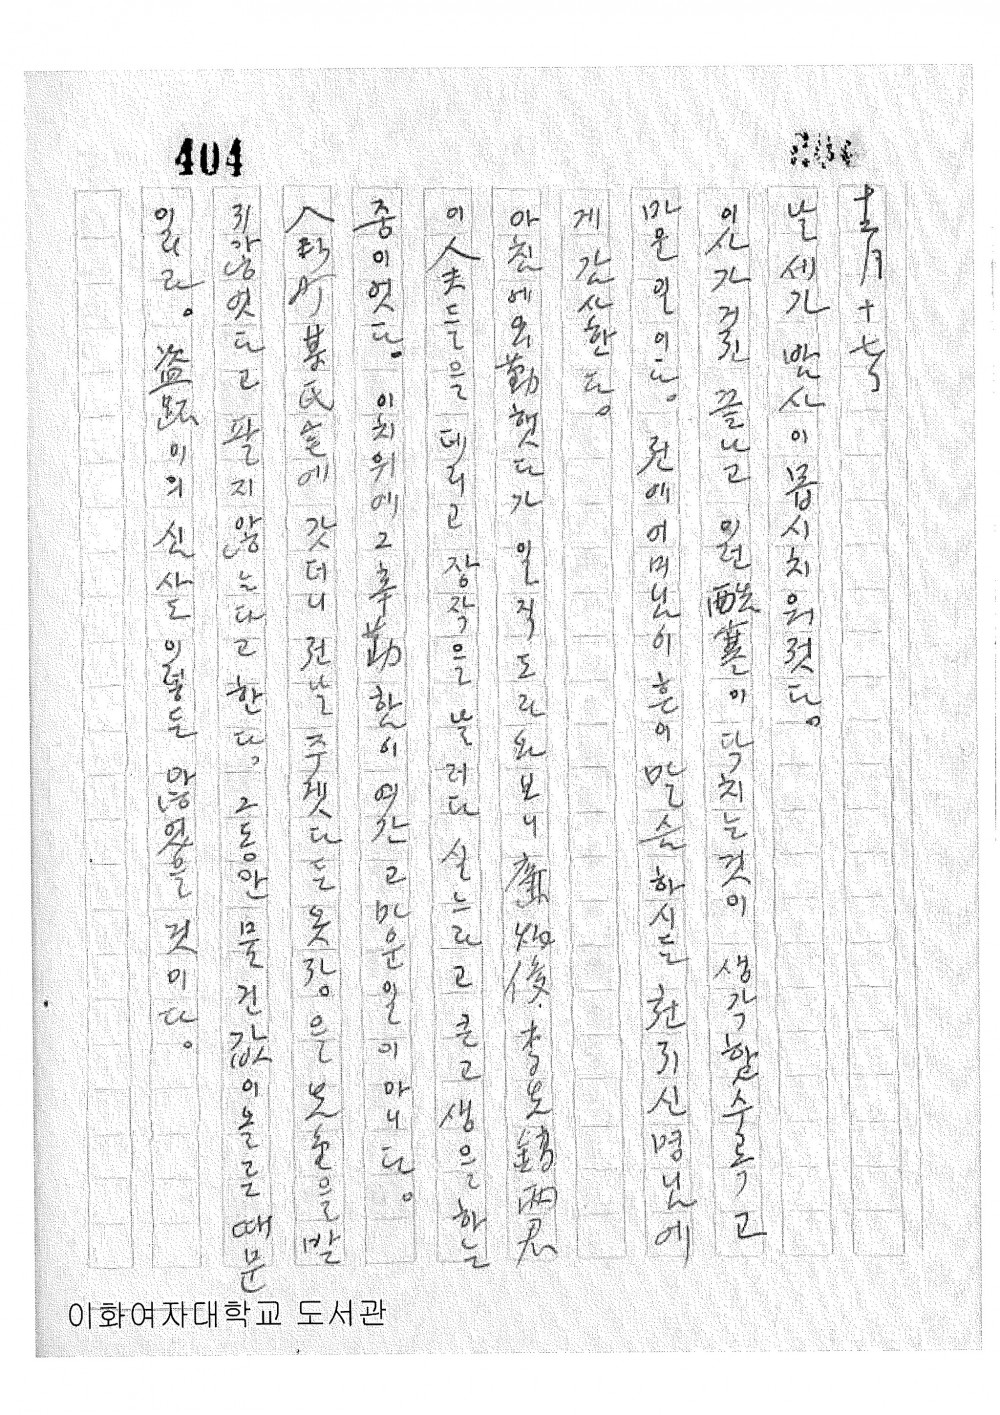 404
十二月十七日
날세가 밤사이 몹시 치워젓다.
이사가 겨긴 끝나고 이런 酷寒이 닥치는것이 생각할수록 고
마운 일이다. 전에 어머님이 흔이 말슴하시든 천지신명님에
게 감사한다.
아침에 외勤햇다가 일직 도라와보니 俊. 李 鎬 兩君
이 人夫들을 데리고 장작을 날러다 싣느라고 큰 고생을 하는
중이엿다. 이 치위에 그 수勤함이 여간 고마운일이 아니다.
某氏宅에 갓더니 전날 주겟다든 옷장을 보증을 발
귀양엿다고 팔지 않는다고 한다. 그동안 물건값이 올른 때문
일니라. 盜跖이의 심사도 이렇든 않엇을 것이다.
이화여자대학교 도서관